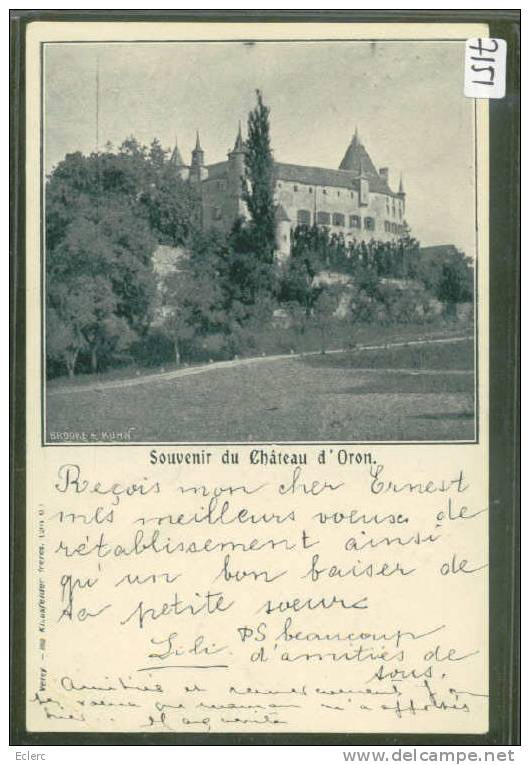 7151
BROOKE & KUHN
Souvenir du Château d'Oron.
Reçois mon cher Ernest
mes meilleurs voeux de
rétablissement ainsi
qu'un bon baiser de
ta petite soeur
Lili. PS beaucoup
d'amitiés de
tous.
Amitiés et remerciement
que maman m'a
Vevey Klausfelder frères.
Eclerc